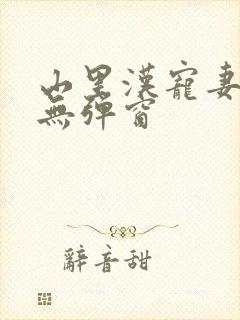 山里漢寵妻
無彈窗
辭音甜